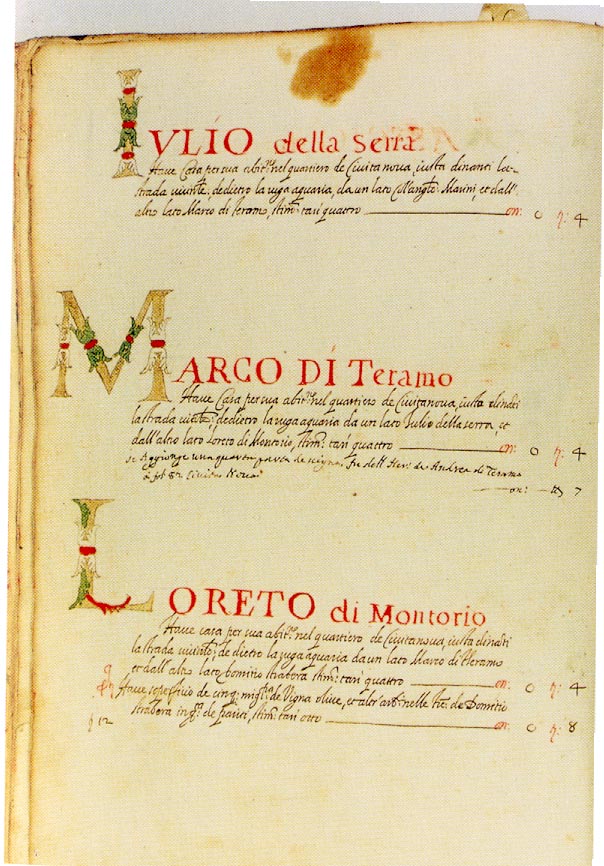 IVLIO della Serra
Have Casa per sua abit.ne nel quartiero de Civitanova, iusta dinanti la
strada vicinte; dedietro la ruga aquaria, da un lato Mangto Marini, et dall'
altro lato Marco di Teramo, stim: tari quattro on: 0 t: 4
MARCO DÍ Teramo
Have Casa per sua abit.ne nel quartiero de Civitanova, iusta dināti
la strada vicinte; dedietro la ruga aquaria da un lato Iulio della serra, et
dall'altro lato Loreto di Montorio, stim: tari quattro on: 0 t: 4
se Aggionge una quarta parte de vigna dell' Her. de Andrea di Teramo
fol: 82 Civita Nova
on: 7
LORETO di Montorio
Have casa per sua abit.ne nel quartiero de Civitanova, iusta dināti
la strada vicinte; de dietro la ruga aquaria da un lato Marco di Theramo
et dall' altro lato Domitio strabora stim: tari quattro on: 0 t: 4
Have de cinq: migl.ra de Vigna olive, et altr' arb: nelle de Domitio
strabora in de stim: tari otto on: 0 t: 8
f 12